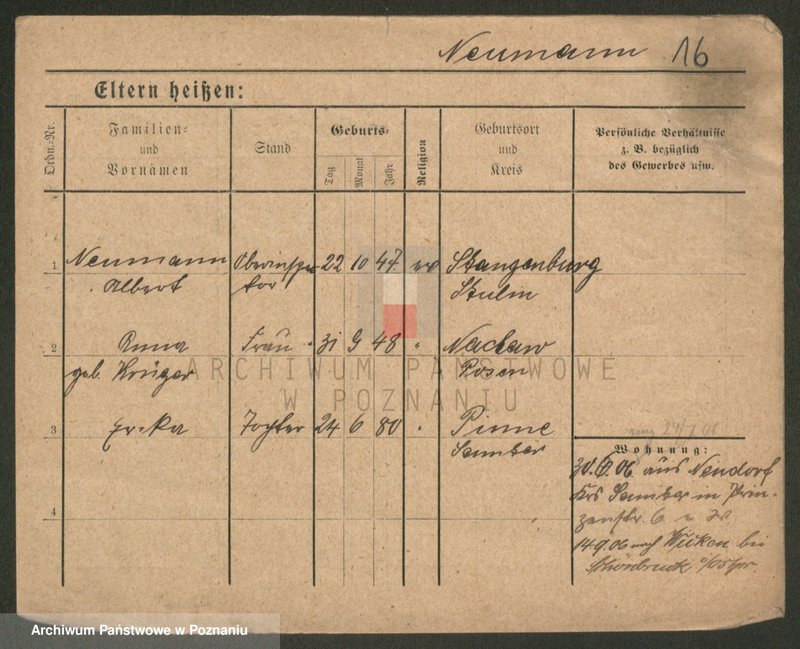 Neumann 16
Eltern heißen:
Ordn.-Nr.
Familien-
und
Vornamen
Stand
Geburts-
Tag
Monat
Jahr
Religion
Geburtsort
und
Kreis
Persönliche Verhältnisse
z. B. bezüglich
des Gewerbes usw.
1 Neumann Oberinspek- 22 10 47 ev Stangenburg
Albert tor Stulm
2 Anna Frau 31 9 48 " Nacław
geb. Krüger Posen
3 Erika Tochter 24 6 80 " Pinne
Samter
4
Wohnung:
30.6.06 aus Neudorf
Krs Samter in Prin-
zenstr. 6
14.9.06 nach Wilken bei
Schönbruck o/Ostpr.
ARCHIWUM PAŃSTWOWE
W POZNANIU
Archiwum Państwowe w Poznaniu